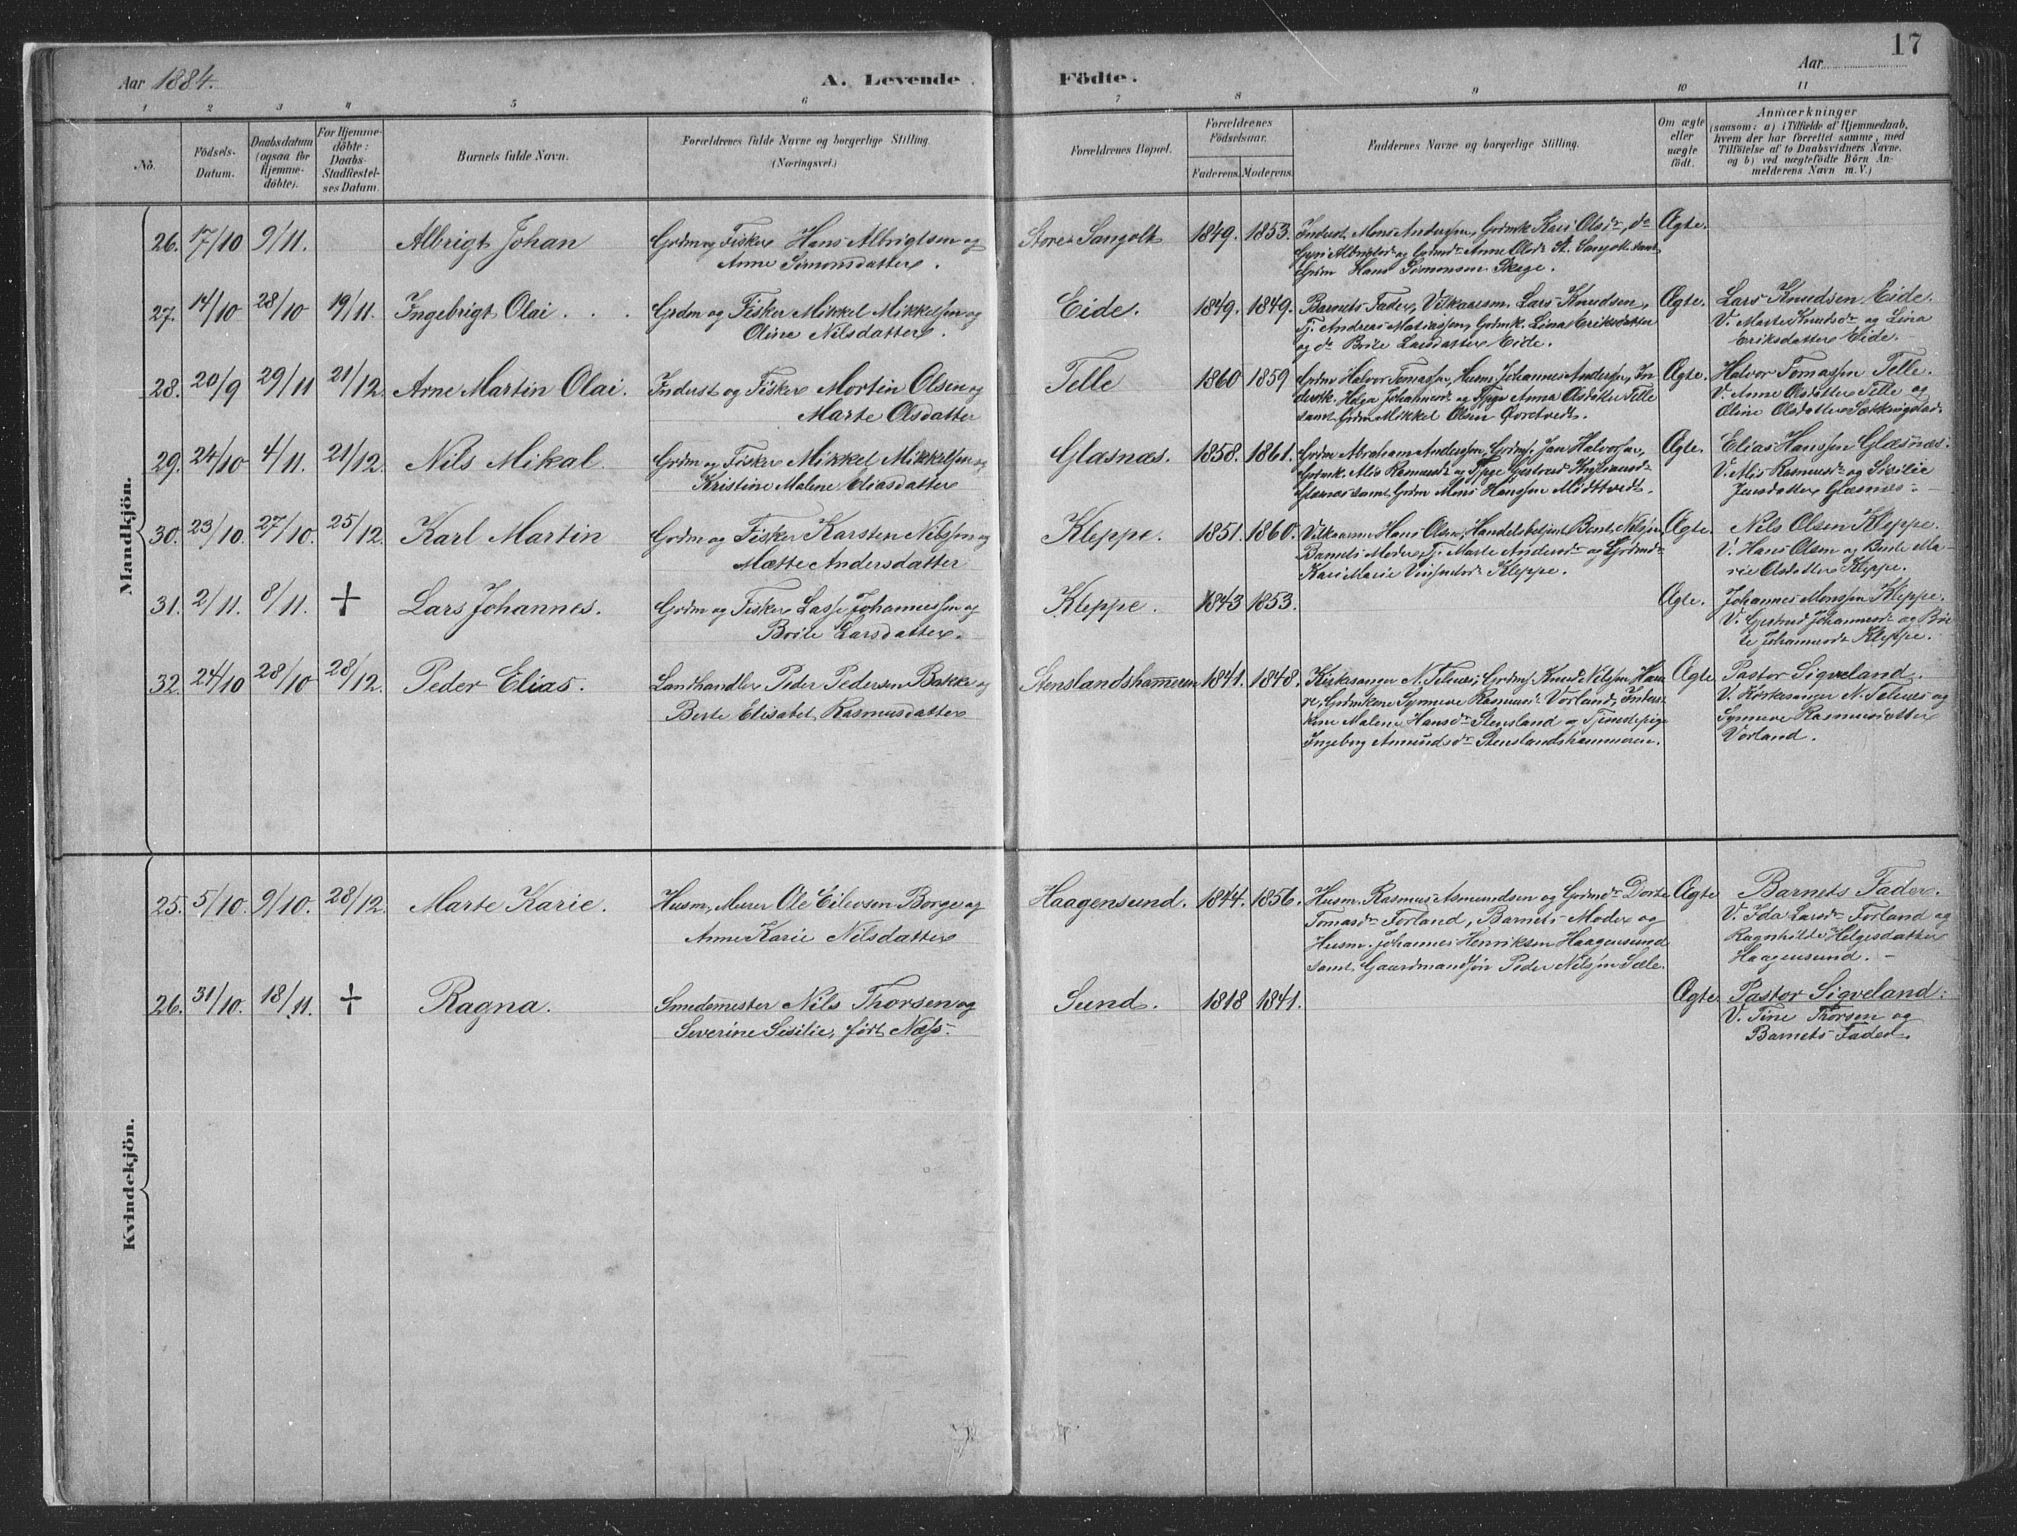 17
Aar 1884.
A. Levende
Födte.
Aar
1 2 3 4 5 6 7 8 9 10 11
No.
Födsels-
Datum.
Daabsdatum
(ogsaa for
Hjemme-
döbte).
For Hjemme-
döbte:
Daabs-
Stadfæstel-
ses Datum.
Barnets fulde Navn.
Forældrenes fulde Navne og borgerlige Stilling.
(Næringsvei.)
Forældrenes Bopæl.
Forældrenes
Födselsaar.
Faderens. Moderens.
Faddernes Navne og borgerlige Stilling.
Om ægte
eller
uægte
födt.
Anmærkninger
(saasom: a) i Tilfælde af Hjemmedaab,
hvem der har forrettet samme, med
Tilföielse af to Daabsvidners Navne,
og b) ved uægtefödte Börn An-
melderens Navn m. V.)
Mandkjön.
26. 17/10 9/11. Albrigt Johan
Grdm og Fisker Hans Albrigtsen og
Anne Simonsdatter.
Store Sangolt 1849. 1853.
Inderst Mons Andersen, Grdmk. Kari Olsdr, do
Guri Albrigtsd og Grdmd. Anne Olsdr St. Sangolt samt
Grdm Hans Simonsen Skoge.
Ægte.
27. 14/10 28/10 19/11. Ingebrigt Olai
Grdm og Fisker Mikkel Mikkelsen og
Oline Nilsdatter.
Eide. 1849. 1849.
Barnets Fader, Vilkaarsm. Lars Knudsen,
Tj. Andreas Matiassen, Grdmk. Lina Eriksdatter
og do Brite Larsdatter Eide.
Ægte.
Lars Knudsen Eide.
V. Marte Knudsdr og Lina
Eriksdatter Eide.
28. 20/9 29/11 21/12. Arne Martin Olai.
Inderst og Fisker Mortin Olsen og
Marte Olsdatter
Telle 1860 1859
Grdm Halvor Tomassen, Husm. Johannes Andersen, In-
derstk. Helga Johannesd. og Pige Anna Olsdatter Telle
samt Grdm Mikkel Olsen
Ægte.
Halvor Tomassen Telle.
V. Anne Olsdatter Telle og
Oline Olsdatter
29. 24/10 4/11. 21/12. Nils Mikal.
Grdm og Fisker Mikkel Mikkelsen og
Kristine Malene Eliasdatter
Glæsnæs. 1858. 1861.
Grdm Abraham Andersen, Grdm. Jan Halvorsen,
Grdmk. Alis Rasmusdr og Pige
Glæsnæs samt Grdm Mons Hanssen Midttvedt.
Ægte.
Elias Hanssen Glæsnæs.
V. Alis Rasmusdr og Sisilie
Jensdatter Glæsnæs.
30. 23/10. 27/10. 25/12. Karl Martin
Grdm og Fisker Karsten Nilssen og
Mætte Andersdatter
Kleppe. 1851. 1860.
Vilkaarm. Hans Olsen, Handelsbetjent Bent Nilsen,
Barnets Moder, Tj. Marte Andersdr og Grdmd.
Kari Marie Kleppe.
Ægte.
Nils Olsen Kleppe.
V. Hans Olsen og Berte Ma-
rie Olsdatter Kleppe.
31. 2/11. 8/11. + Lars Johannes.
Grdm og Fisker Lasse Johannessen og
Brite Larsdatter.
Kleppe. 1843 1853.
Ægte.
Johannes Monssen Kleppe.
V. Gertrud Johannesdr og Bri-
te Johannesdr Kleppe.
32. 24/10 28/10 28/12. Peder Elias.
Landhandler Peder Pedersen Bakke og
Berte Elisabet Rasmusdatter
Stenslandshammeren 1841. 1848.
Kirkesanger N. Telnæs, Grdm. Knud Nilsen Ham-
re, Grdmkone Synneve Rasmusdr Vorland, Inderst-
kone Malene Hansdr Stensland og Tjenestepige
Ingeborg Amundsdr Stenslandshammeren.
Ægte
Pastor Sigveland.
V. Kirkesanger N. Telnæs og
Synneve Rasmusdatter
Vorland.
Kvindekjön.
25. 5/10. 9/10. 28/12. Marte Karie.
Husm., Murer Ole Eilevsen Borge og
Anne Karie Nilsdatter
Haagensund. 1844. 1856.
Husm. Rasmus Asmundsen og Grdmdr Dorte
Tomasdr Forland, Barnets Moder og
Husm. Johannes Henriksen Haagensund
samt Gaardmandssøn Peder Nilsen Sæle.
Ægte
Barnets Fader.
V. Ida Larsdr Forland og
Ragnhilde Helgesdatter
Haagensund.
26. 31/10. 18/11. + Ragna.
Smedemester Nils Thorsen og
Severine Sisilie, født Næss.
Sund. 1818 1841.
Ægte.
Pastor Sigveland.
V. Tine Thorsen og
Barnets Fader.